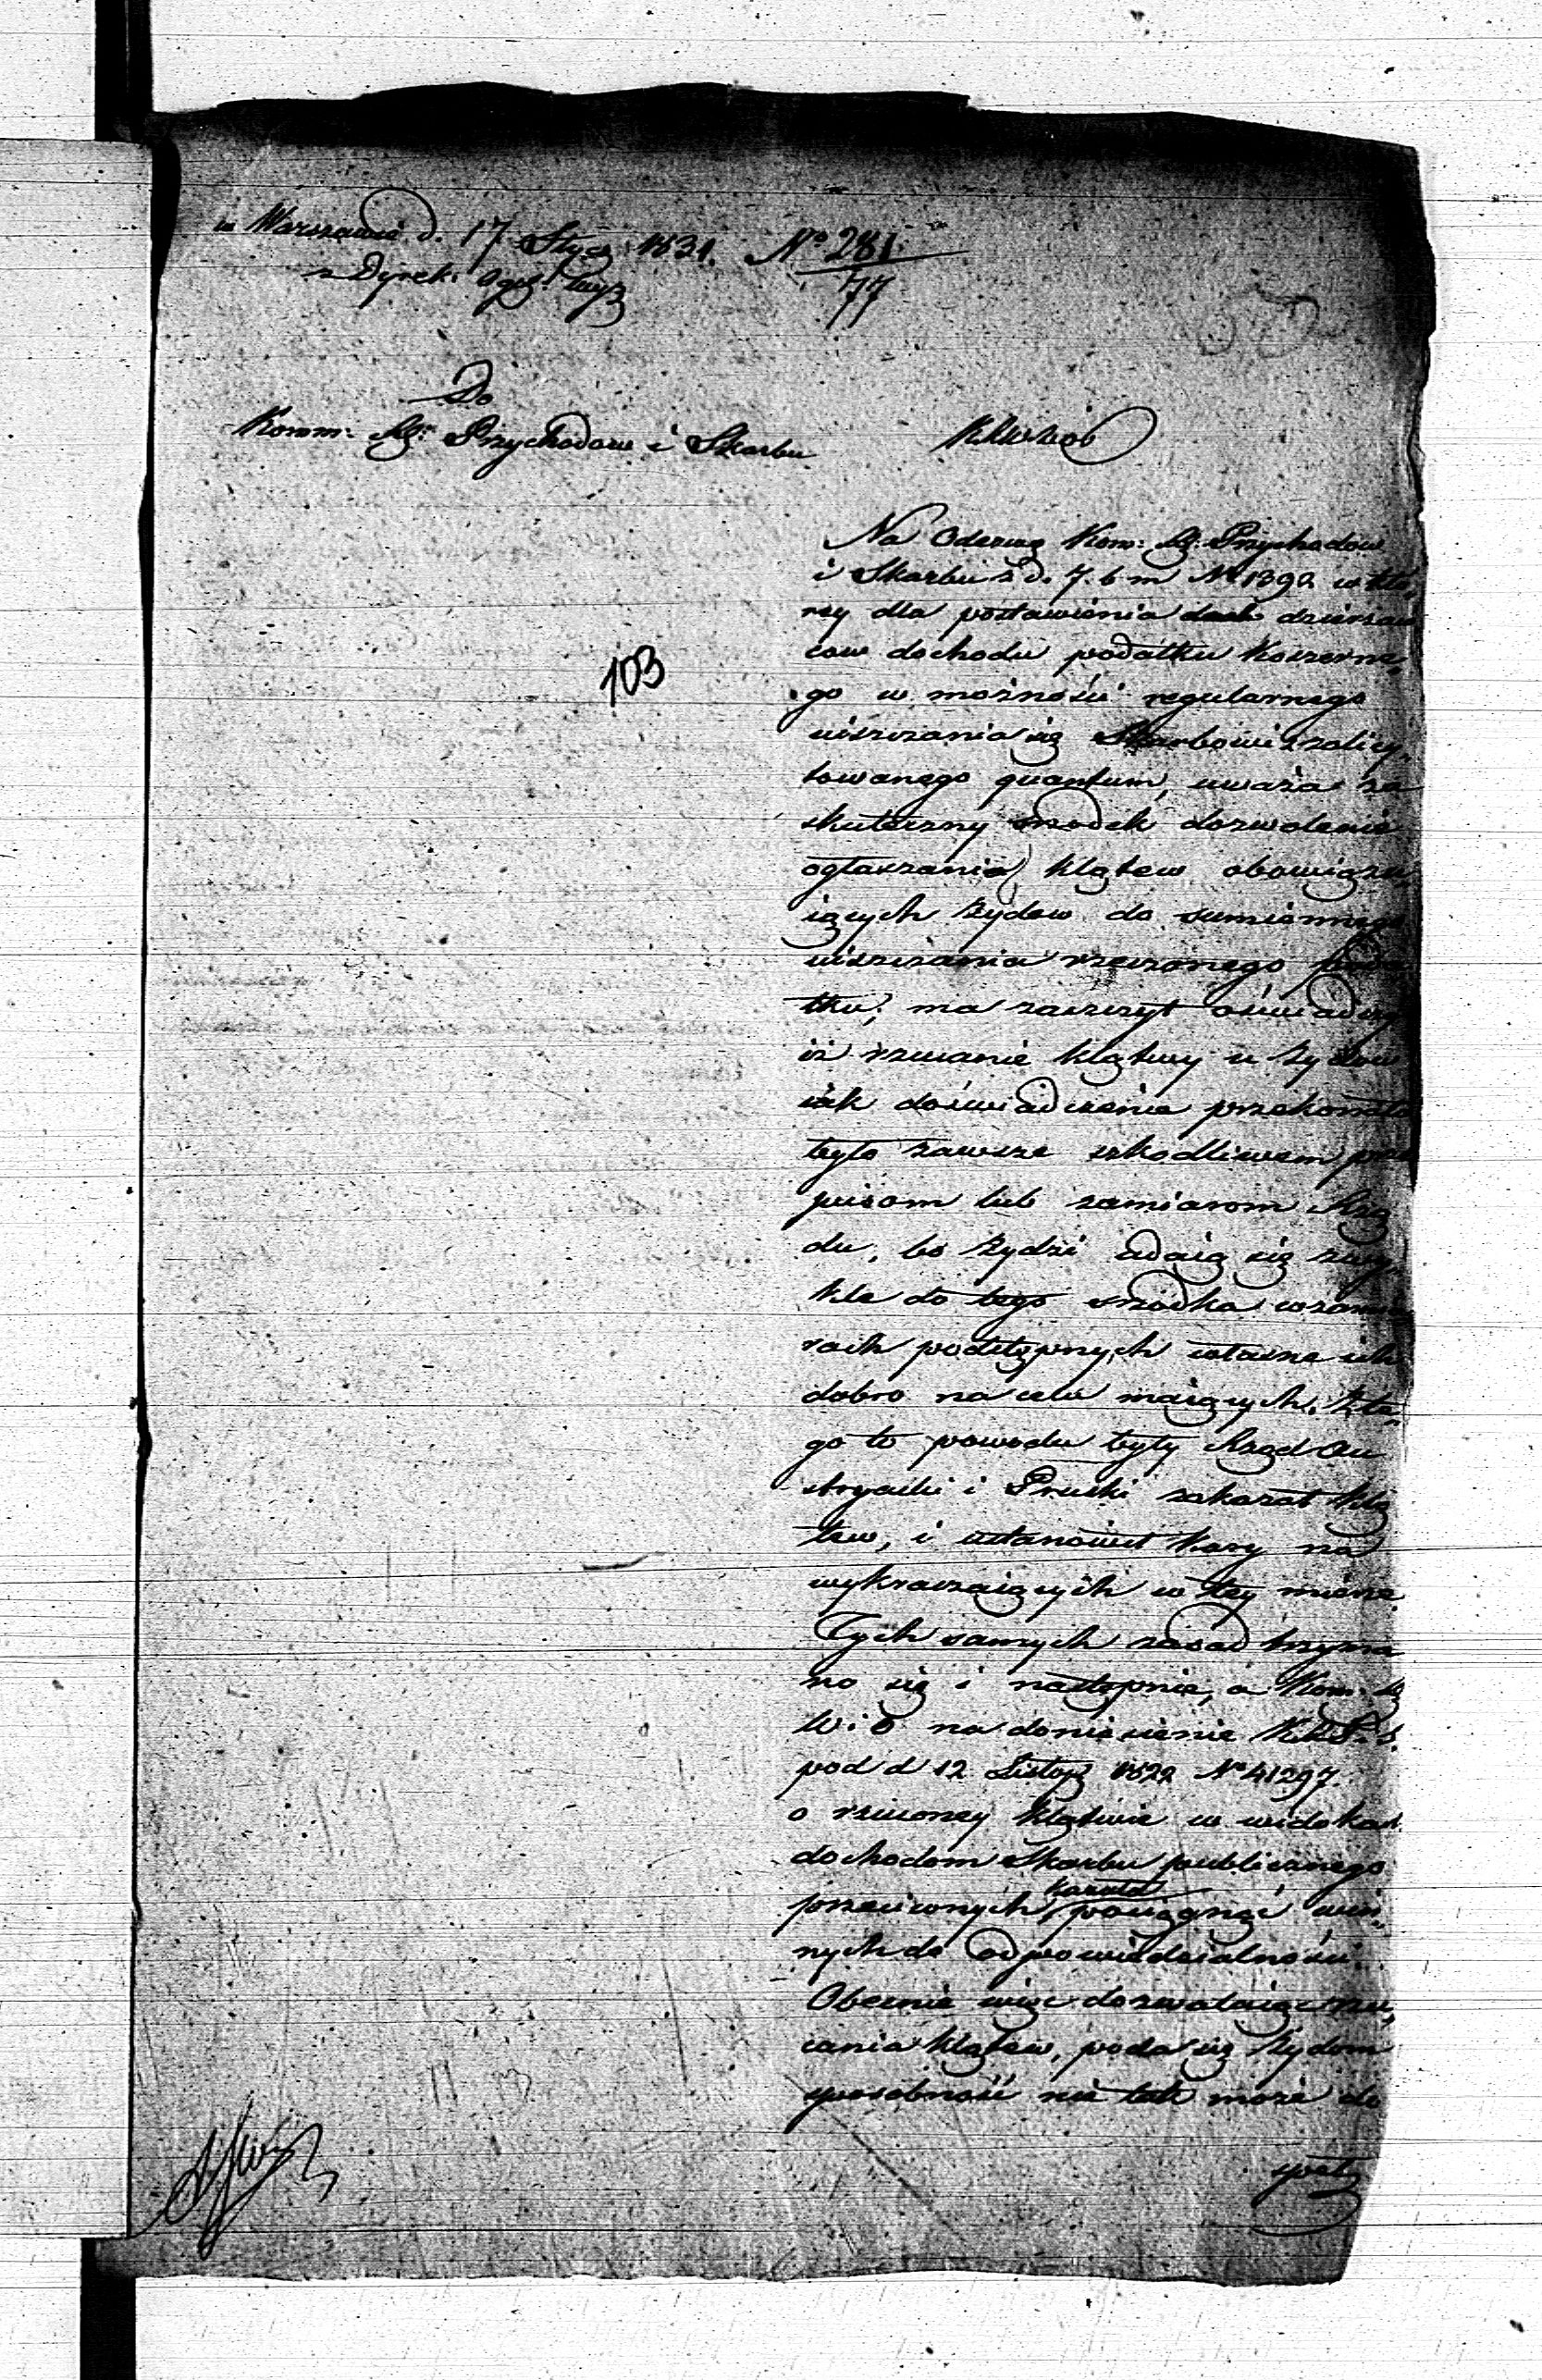 w Warszawie d. 17 Stycz: 1831. N° 281.
z Dyrek: Ogól: Wyz 77
Do
Komm: Rz: Przychodow i Skarbu
KRWRiOP
Na Odezwę Kom: Rz: Przychodow
i Skarbu z d. 7. b m N° 1392 w któ,
rey dla postawienia dzierżaw
cow dochodu podatku Koszerne,
go w możności regularnego
uiszczania się Skarbowi z zalicy,
towanego quantum, uważa za
skuteczny srodek dozwolenie
ogłaszania klątew obowiązu,
iących Żydow do sumiennego
uiszczania rzeczonego poda
tku; ma zaszczyt oświadczyć
iż rzucanie klątwy u Żydow
iak doświadczenie przekonało
było zawsze szkodliwem prze
pisom lub zamiarom Rzą
du, bo Żydzi udaią się zwy,
kle do tego srzodka w zamia
rach podstępnych własne ich
dobro na celu maiących. Z te,
go to powodu były Rząd Au
stryacki i Pruski zakazał klą
tew, i ustanowił kary na
wykraczaiących w tey mierze.
Tych samych zasad trzyma
no się i następnie, a Kom: Rz
W: i O na doniesienie KRP. i S.
pod d 12 Listop 1822 N° 41297.
o rzuconey klątwie w widokach
dochodom Skarbu publicznego
przeciwnych kazała pociągnąć win,
nych do odpowiedzialności.
Obecnie więc dozwalaiąc rzu,
cania klątew, poda się Żydom
sposobność nie tak może do
103